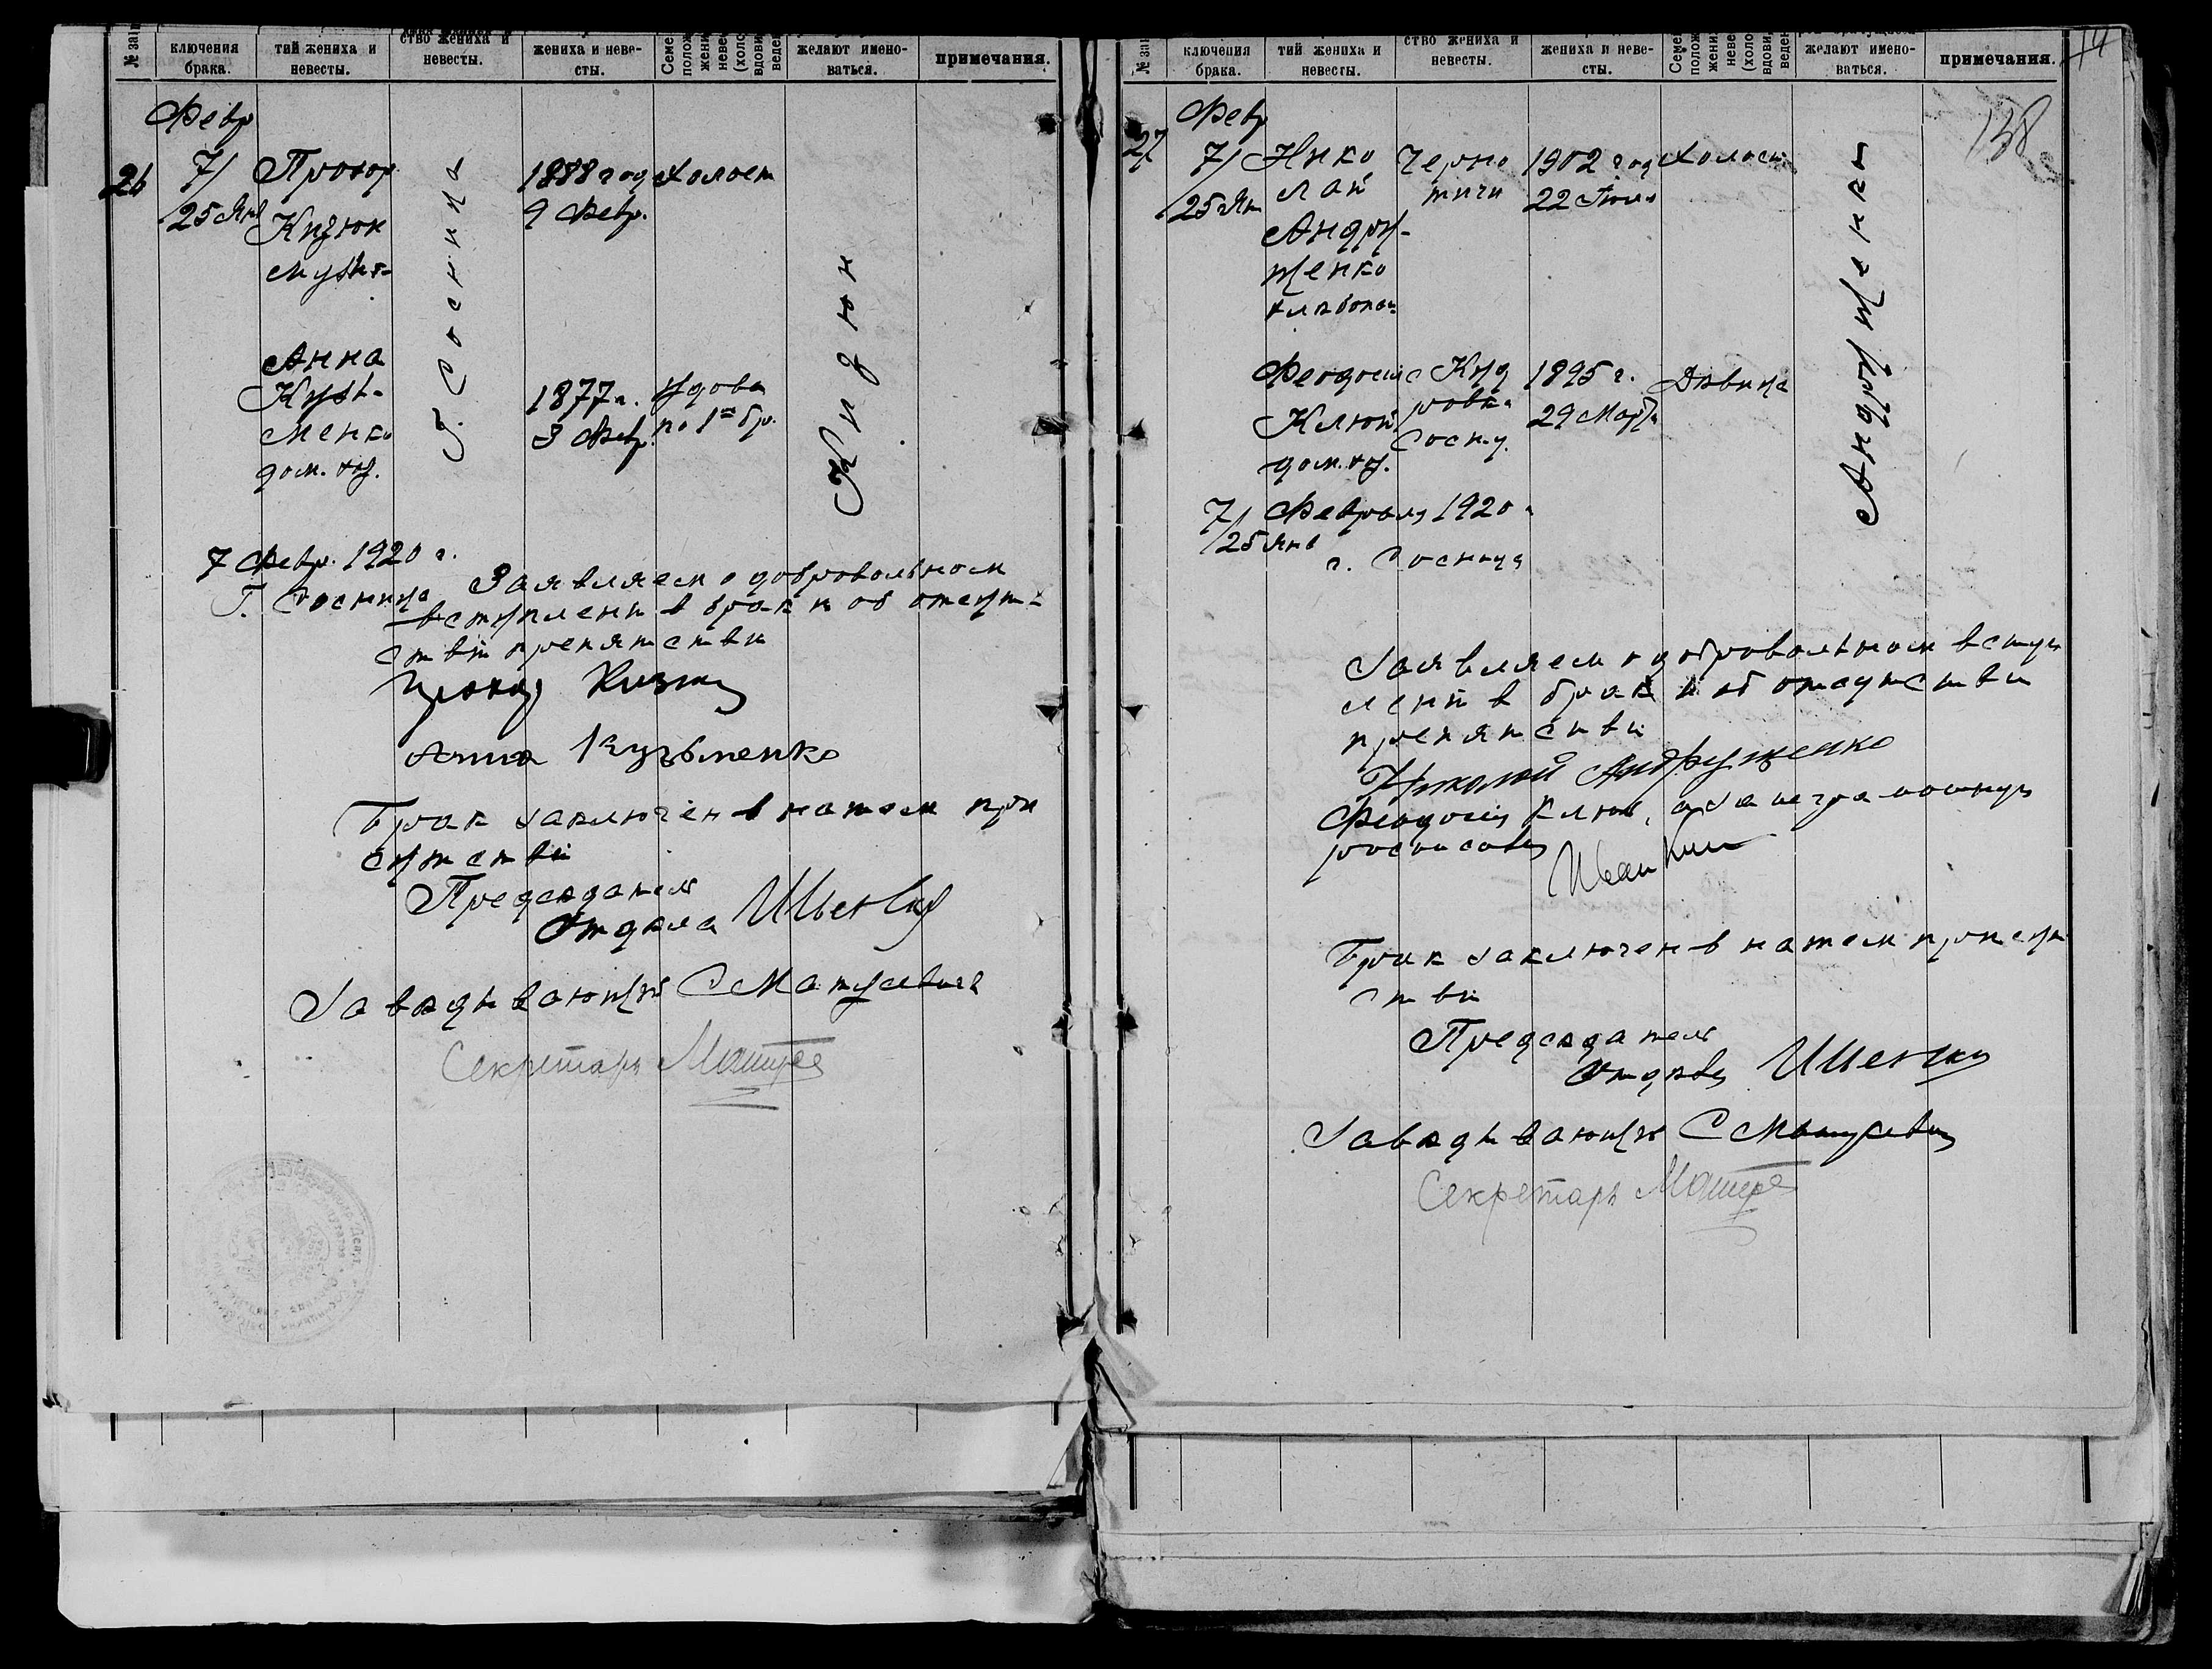 № зап
ключения
брака.
тий жениха и
невесты.
ство жениха и
невесты.
жениха и неве-
сты.
Семе
полож
жени
неве
(холо
вдови
веден
желают имено-
ваться.
примечания.
Февр
26
7/
/25 Янв
Прохор
Кизюн
1888 год
9 Февр.
Холост
г. Сосница
Кизюн
Анна
Кузь-
менко
дом. хоз.
1877 г.
3 Февр.
Вдова
по 1му бр.
7 Февр. 1920 г.
Г. Сосница
Заявляем о добровольном
вступлении в брак и об отсут-
ствии препятствий
Прохор Кизюн
Анна Кузьменко
Брак заключен в нашем при
сутствии
Председатель
Отдела
Заведывающий С Матусевич
Секретарь
№ зап
ключения
брака.
тий жениха и
невесты.
ство жениха и
невесты.
жениха и неве-
сты.
Семе
полож
жени
неве
(холо
вдови
веден
желают имено-
ваться.
примечания.
158
Февр
27
7/
/25 Ян
Нико
лай
Андру-
щенко
хлебопаш
Черно
тичи
1902 год
22 Июля
Холост
Андрущенки
Феодосия
Клюй
дом. хоз.
с Куд
ровка
Сосн. у.
1895 г.
29 Марта
Девица
7/ Февраля 1920 г
/25 Янв
г. Сосница
Заявляем о добровольном вступ
лении в брак и об отсутствии
препятствий
Николай Андрущенко
Феодосия Клюй, а за неграмотную
росписався
Брак заключен в нашем присут
ствии
Председатель
Отдела
Заведывающий С Матусевич
Секретарь